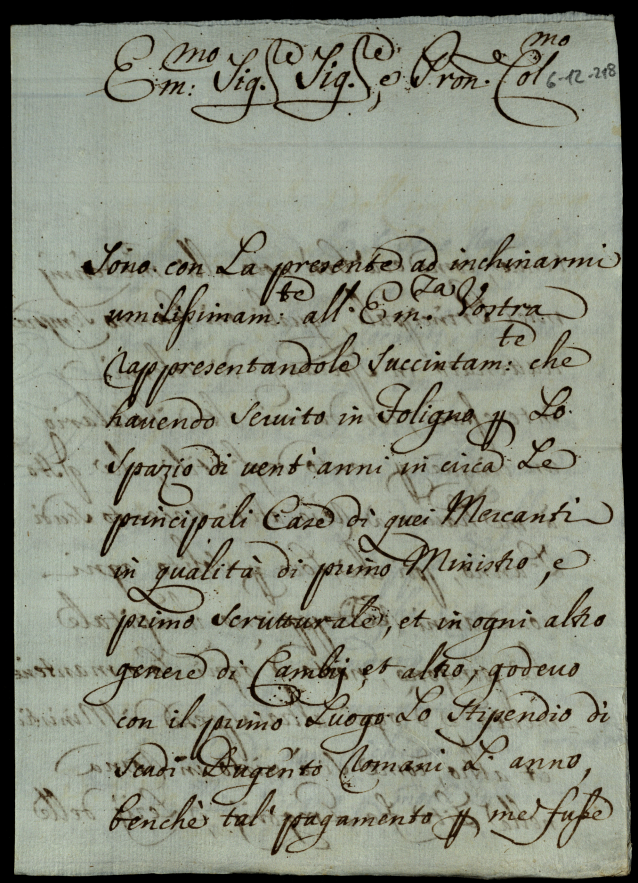 Em:mo Sig.re Sig.re, e Pron.e Col.mo
6-12-218
Sono con La presente ad inchinarmi
umilissimam:te all' Em.za Vostra
rappresentandole succintam:te che
havendo servito in Foligno p Lo
spazio di vent' anni in circa Le
principali Case di quei Mercanti
in qualità di primo Ministro, e
primo Scritturale, et in ogni altro
genere di Cambij, et altro, godevo
con il primo Luogo Lo Stipendio di
Scudi Dugento Romani L' anno,
benchè tal' pagamento p me fusse